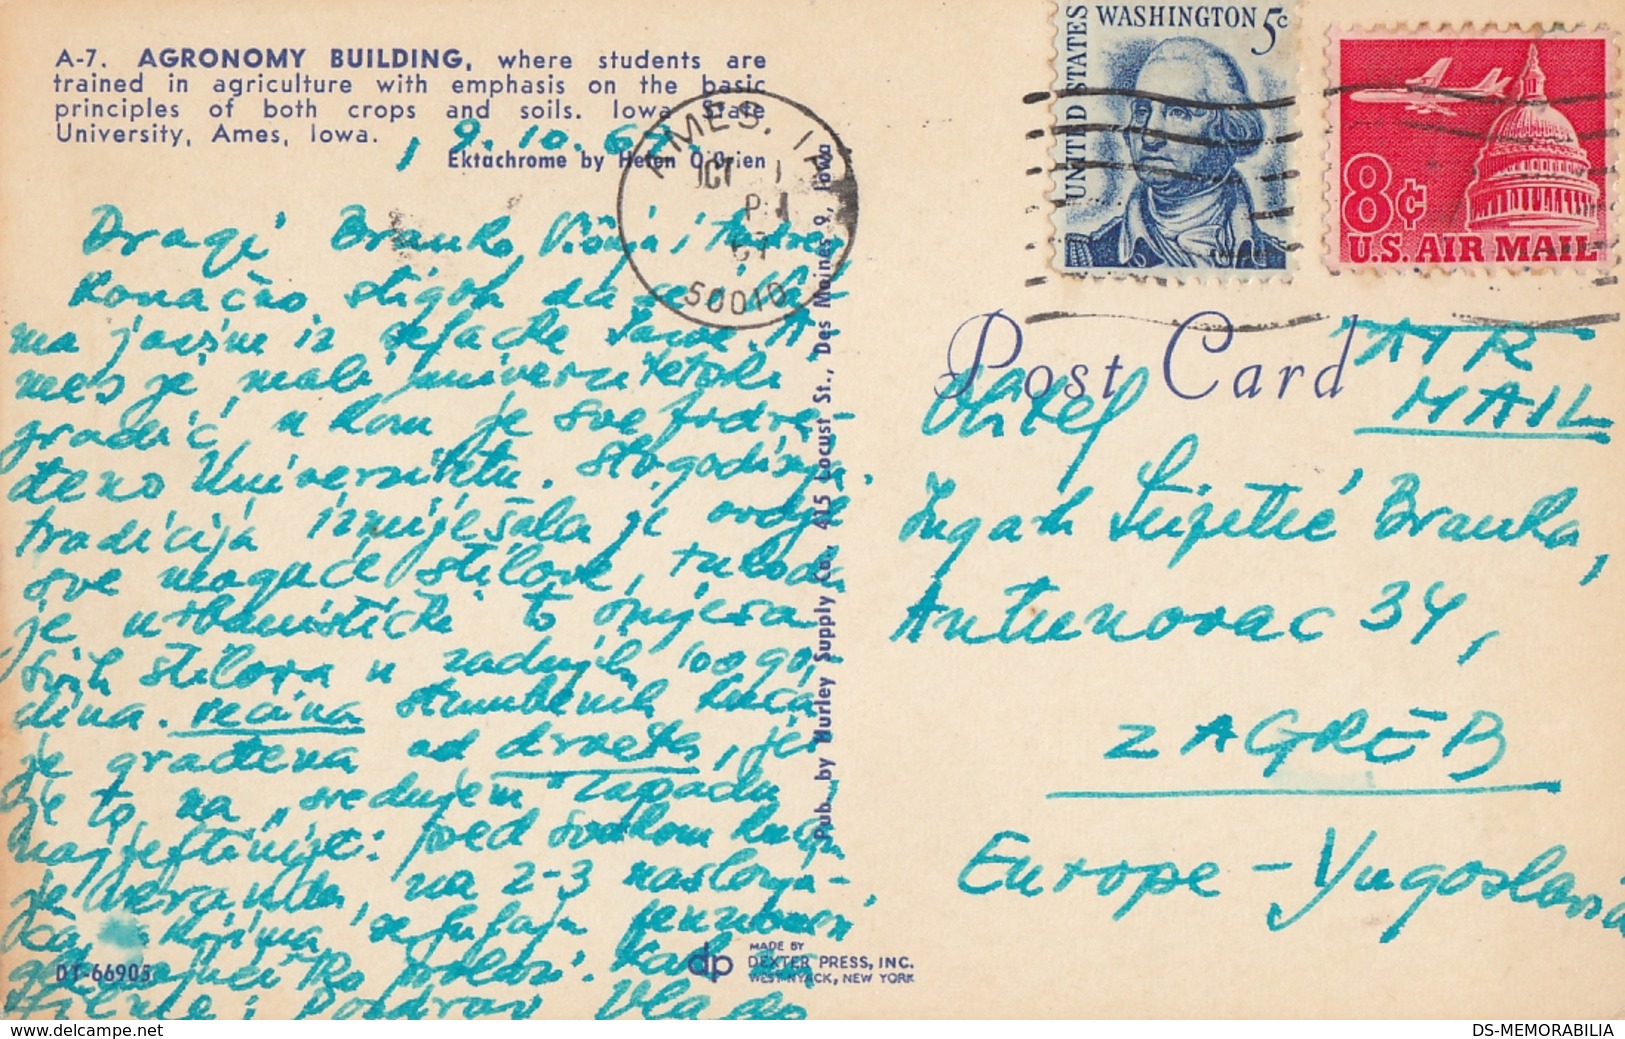 A-7. AGRONOMY BUILDING, where students are
trained in agriculture with emphasis on the basic
principles of both crops and soils. Iowa State
University, Ames, Iowa.
Ektachrome by Helen O'Brien
9.10.67.
AMES, IA
OCT
PM
67
50010
UNITED STATES
WASHINGTON 5c
8¢
U.S. AIR MAIL
Post Card
AIR
MAIL
Dragi Branko, Višnja i Andrej
Konačno stigoh da se i Va-
ma javim iz
mes je mali univerzitetski
gradić u kom je sve podre-
đeno Univerzitetu. Stogodišnja
tradicija izmiješala je ovdje
sve moguće stilove, također
je urbanistički to smjesa
svih stilova u zadnjih 100 go-
dina. Većina stambenih kuća
je građena od drveta, jer
je to na "srednjem Zapadu"
najjeftinije: pred svakom kućom
je veranda, na 2-3 naslonja-
ča, u kojima se ljuljaju penzioneri
prolazi.
i Pozdrav Vlado
Obitelj
Ingah Branka,
Antunovac 34,
ZAGREB
Europe - Yugoslavia
Pub. by Hurley Supply Co., 415 Locust St., Des Moines 9, Iowa
DT-66905
dp
MADE BY
DEXTER PRESS, INC.
WEST NYACK, NEW YORK
https://www.delcampe.net
DS-MEMORABILIA